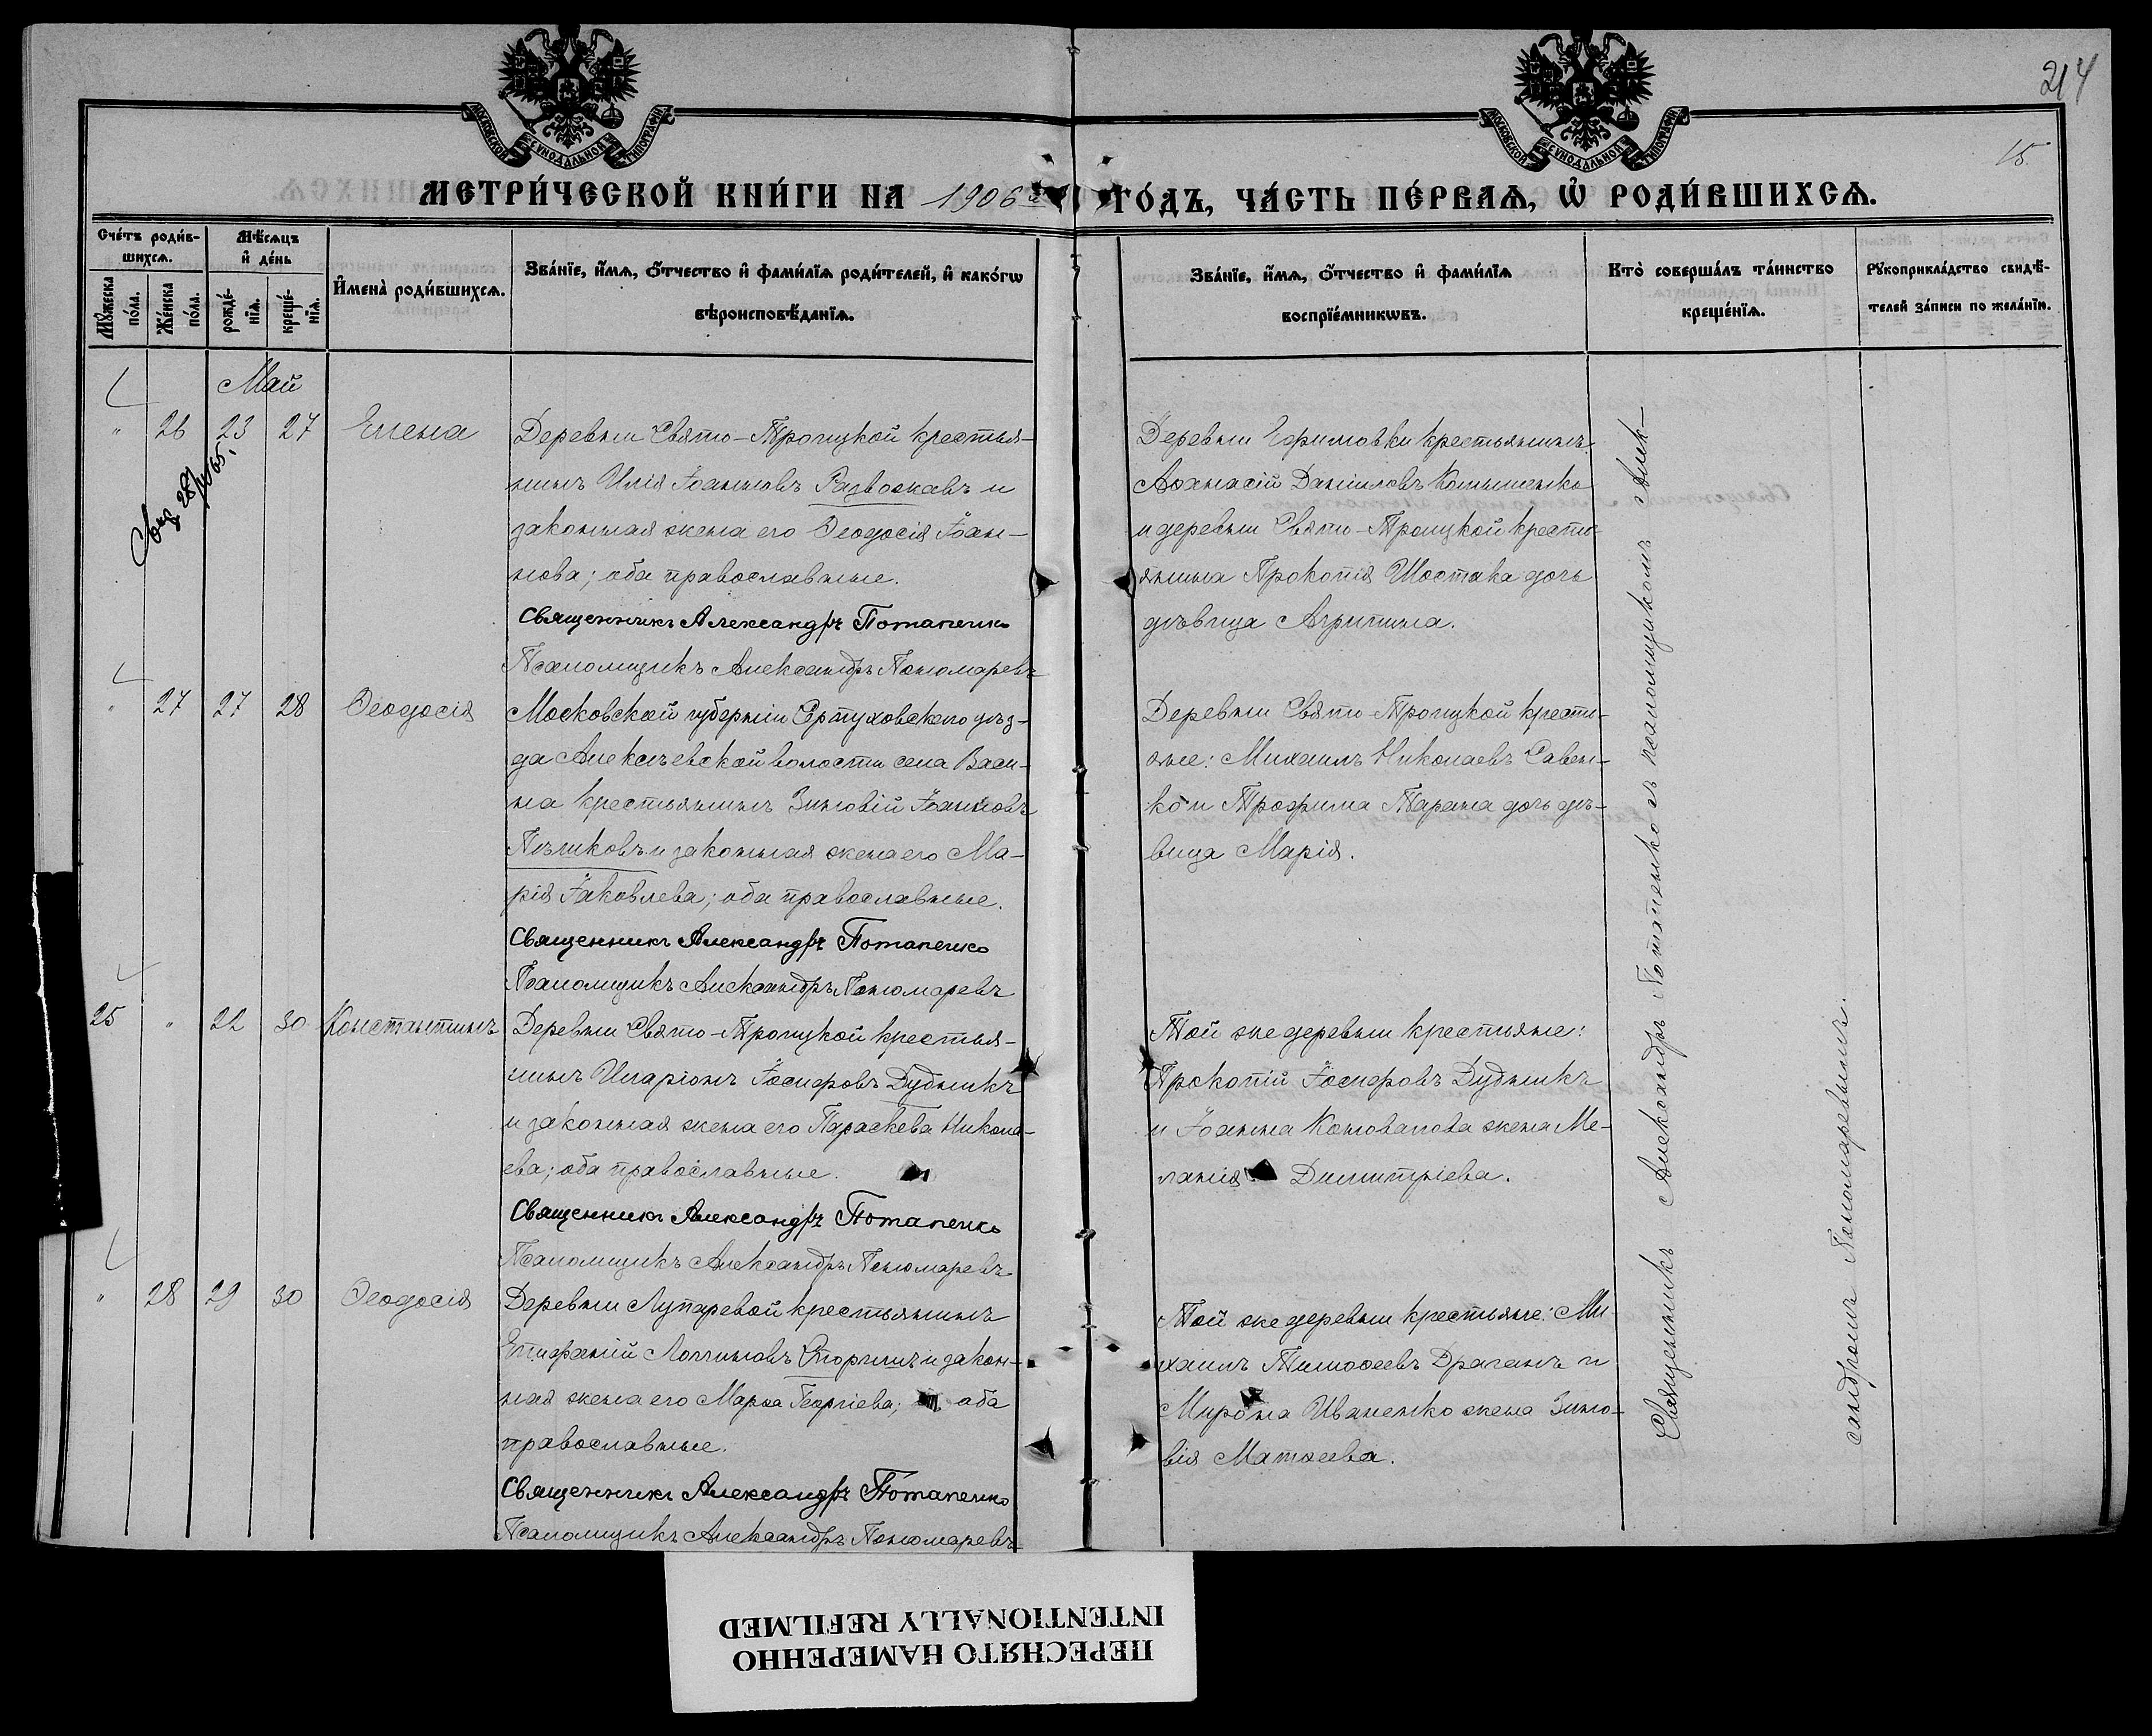 214
15.
МОСКОВСКОЙ СѴНОДАЛЬНОЙ ТИПОГРАФІИ
МОСКОВСКОЙ СѴНОДАЛЬНОЙ ТИПОГРАФІИ
МЕТРИ́ЧЕСКОЙ КНИ́ГИ НА 1906й ГО́ДЪ, ЧА́СТЬ ПЕ́РВАѦ, Ѡ҆ РОДИ́ВШИХСѦ.
Сче́тъ роди́в-
шихсѧ.
Мꙋ́жеска по́ла.
Же́нска по́ла.
Мѣ́сѧцъ
и҆ де́нь
рожде́-
нїѧ.
креще́-
нїѧ.
И҆мена̀ роди́вшихсѧ.
Зва́нїе, и҆́мѧ, ѻ҆́тчество и҆ фами́лїѧ роди́телей, и҆ како́гѡ
вѣроисповѣ́данїѧ.
Зва́нїе, и҆́мѧ, ѻ҆́тчество и҆ фами́лїѧ
воспрїе́мникѡвъ.
Кто̀ соверша́лъ та́инство
креще́нїѧ.
Рꙋкоприкла́дство свидѣ́-
телей за́писи по жела́нїю.
Май
" 26 23 27 Елена
Деревни Свято-Троицкой крестья-
нинъ Илія Іоанновъ Развозкавъ и
законная жена его Ѳеодосія Іоан-
нова; оба православные.
Священникъ Александръ Потапенко
Псаломщикъ Александръ Пономаревъ
Деревни Ефимовки крестьянинъ
Аѳанасій Даніиловъ Конышенко
и деревни Свято-Троицкой кресть-
янина Прокопія Шостака дочь
дѣвица Агрипина.
Свид. 28/IV 65.
" 27 27 28 Ѳеодосія
Московской губерніи Серпуховскаго уѣз-
да Алексѣевской волости села Васи-
на крестьянинъ Зиновій Іоанновъ
Пѣчиковъ и законная жена его Ма-
рія Іаковлева; оба православные.
Священникъ Александръ Потапенко
Псаломщикъ Александръ Пономаревъ
Деревни Свято-Троицкой кресть-
яне: Михаилъ Николаевъ Савен-
ко и Трофима Тарана дочь дѣ-
вица Марія.
25 " 22 30 Константинъ
Деревни Свято-Троицкой крестья-
нинъ Иларіонъ Іосифовъ Дудникъ
и законная жена его Параскева Никола-
ева; оба православные.
Священникъ Александръ Потапенко
Псаломщикъ Александръ Пономаревъ
Той же деревни крестьяне:
Прокопій Іосифовъ Дудникъ
и Іоанна Коновалова жена Ме-
ланія Димитріева.
" 28 29 30 Ѳеодосія
Деревни Лупаревой крестьянинъ
Епифаній Логгиновъ Сторчилъ и закон-
ная жена его Марѳа Георгіева; оба
православные.
Священникъ Александръ Потапенко
Псаломщикъ Александръ Пономаревъ
Той же деревни крестьяне: Ми-
хаилъ Тимоѳеевъ Драганъ и
Мирона Иваненко жена Зино-
вія Матѳеева.
Священникъ Александръ Потапенко съ псаломщикомъ Алек-
сандромъ Пономаревымъ.
ПЕРЕСНЯТО НАМЕРЕННО
INTENTIONALLY REFILMED